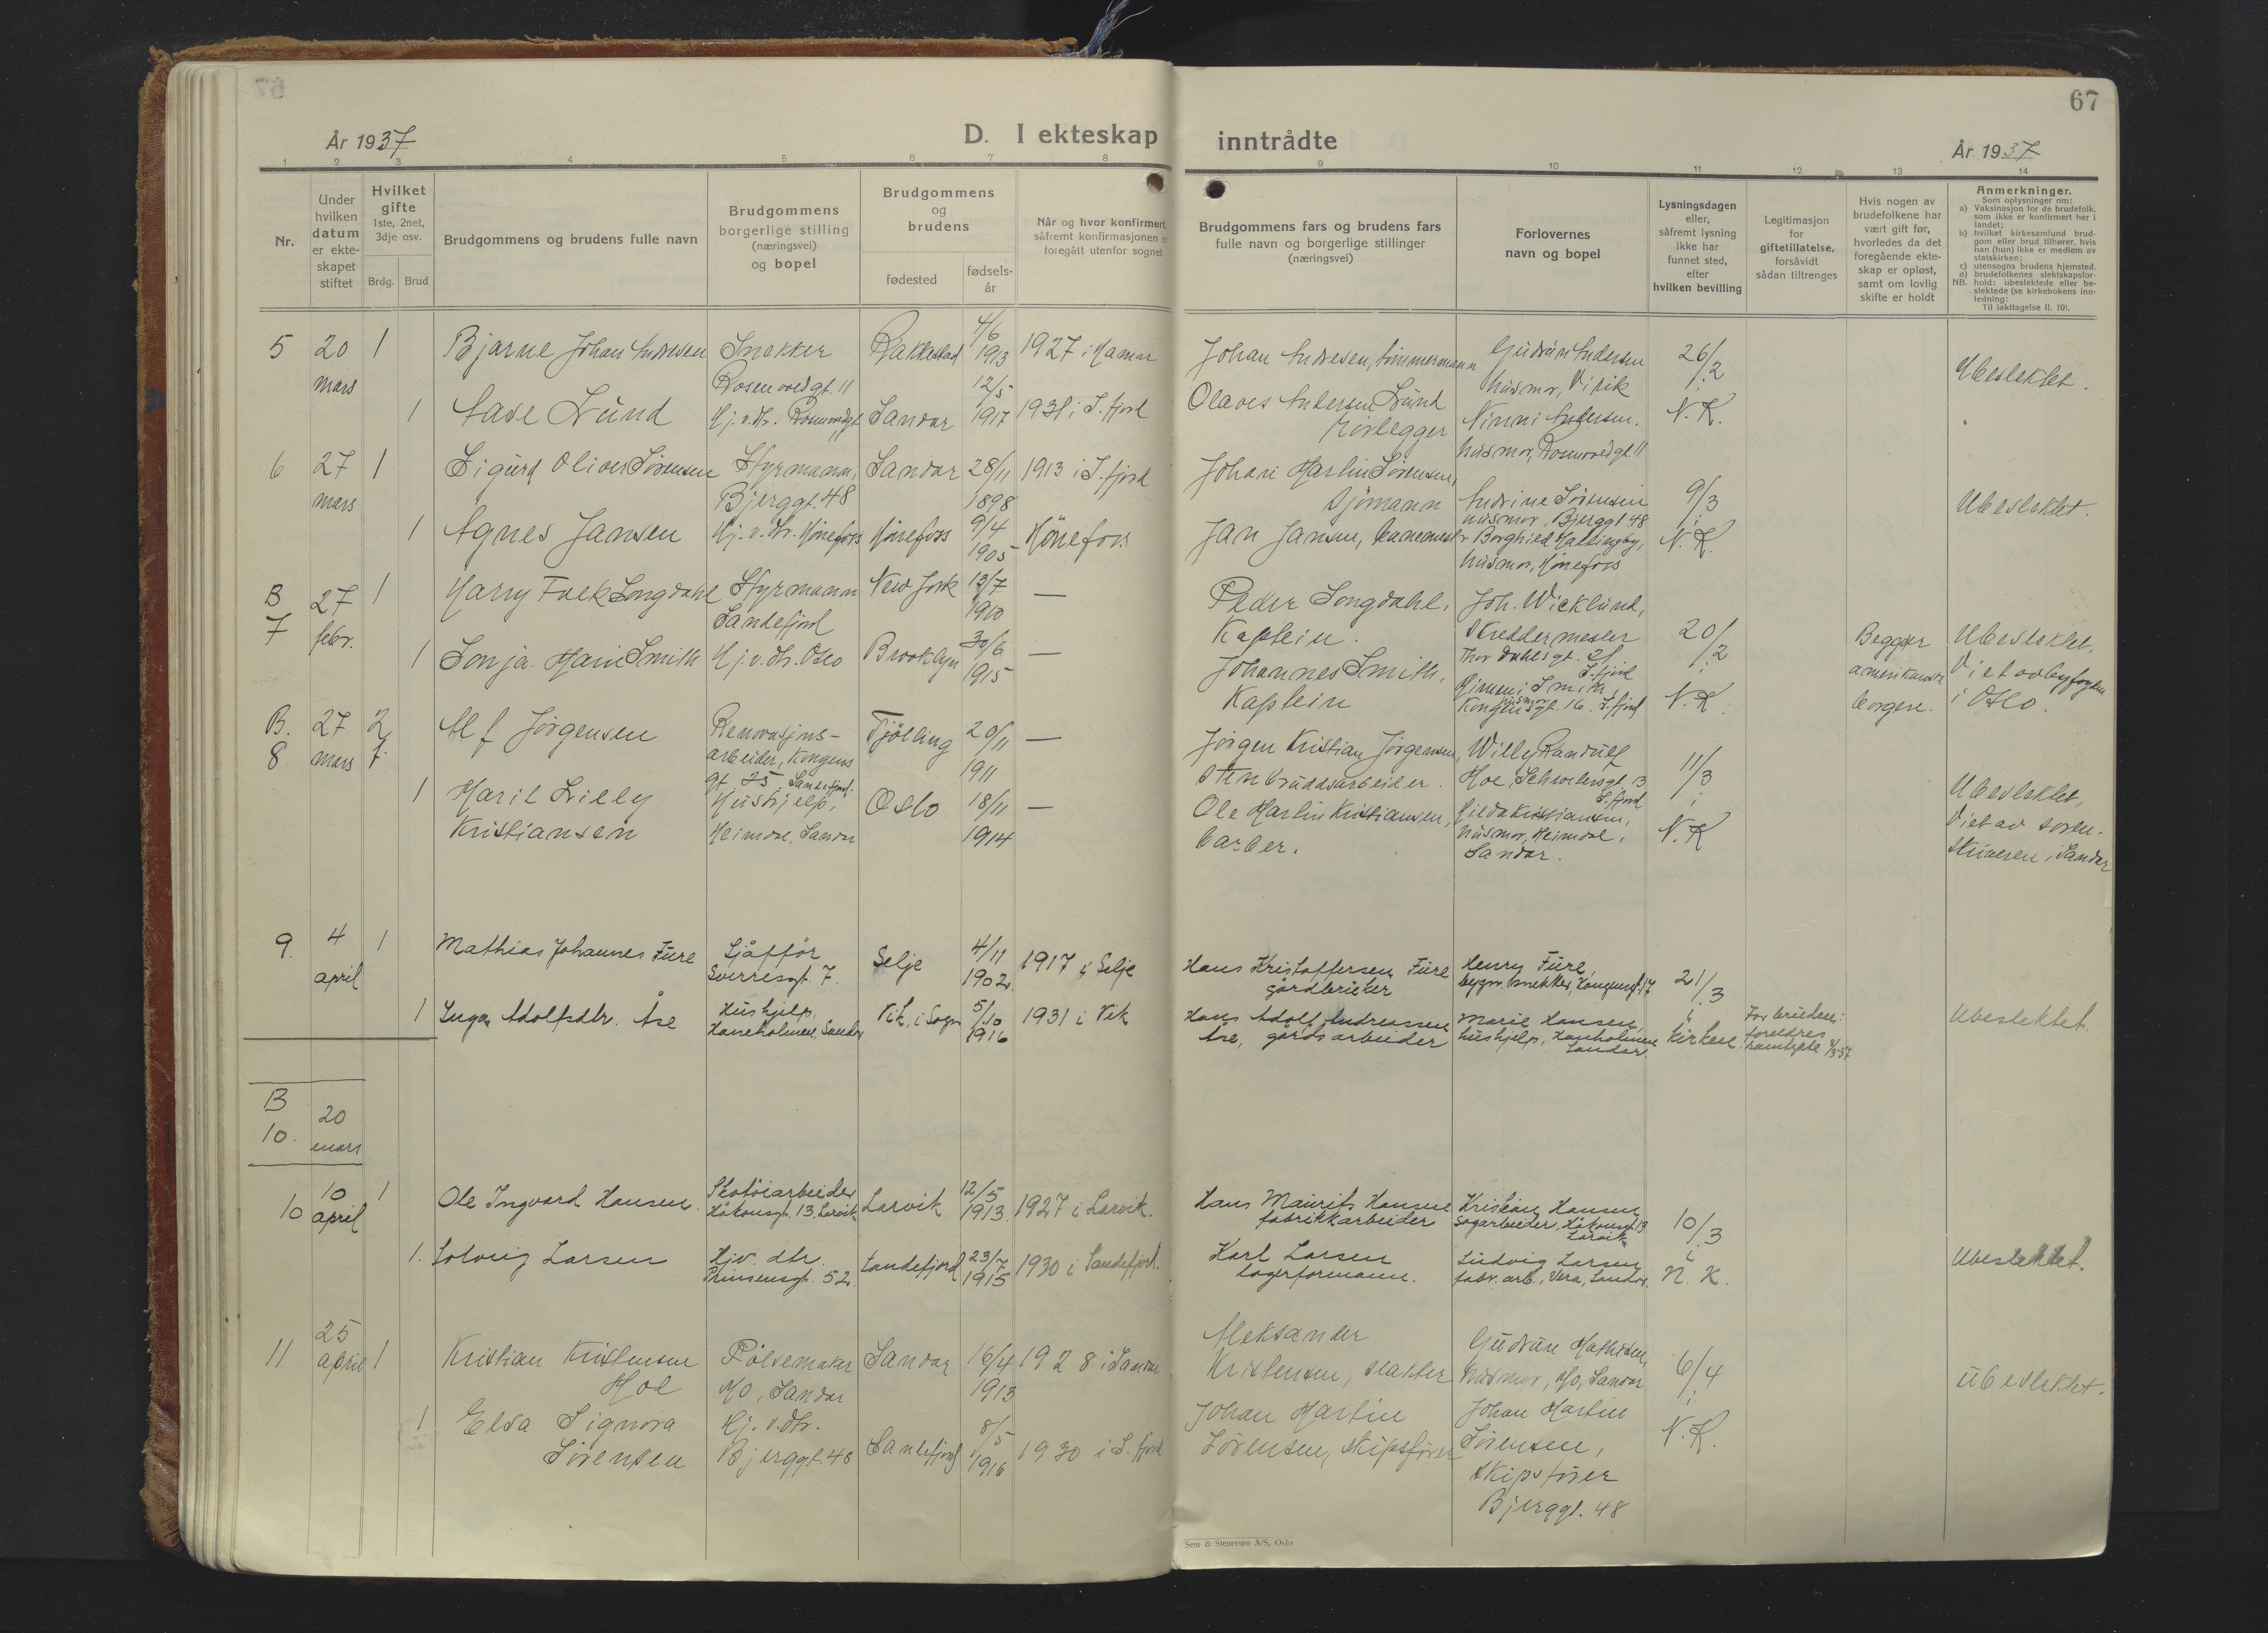 67
År 1937
D. I ekteskap inntrådte
År 1937
1 2 3 4 5 6 7 8 9 10 11 12 13 14
Nr.
Under hvilken datum er ekte-skapet stiftet
Hvilket gifte 1ste, 2net, 3dje osv.
Brdg. Brud
Brudgommens og brudens fulle navn
Brudgommens borgerlige stilling (næringsvei) og bopel
Brudgommens og brudens
fødested
fødsels-år
Når og hvor konfirmert, såfremt konfirmasjonen er foregått utenfor sognet
Brudgommens fars og brudens fars fulle navn og borgerlige stillinger (næringsvei)
Forlovernes navn og bopel
Lysningsdagen eller, såfremt lysning ikke har funnet sted, efter hvilken bevilling
Legitimasjon for giftetillatelse, forsåvidt sådan tiltrenges
Hvis nogen av brudefolkene har vært gift før, hvorledes da det foregående ekte-skap er opløst, samt om lovlig skifte er holdt
Anmerkninger.
Som oplysninger om:
a) Vaksinasjon for de brudefolk, som ikke er konfirmert her i landet;
b) hvilket kirkesamfund brud-gom eller brud tilhører, hvis han (hun) ikke er medlem av statskirken;
c) utensogns brudens hjemsted.
d) brudefolkenes slektskapsfor-hold: ubeslektede eller be-slektede (se kirkebokens inn-ledning:
NB. Til iakttagelse II. 10).
5 20 mars 1 Bjarne Johan Andresen Snekker Rosenvoldgt. 11 Rakkestad 4/6 1913 1927 i Hamar
Johan Andresen, tømmermann Gudrun Andersen husmor, Virik 26/2 i N. K. Ubeslektet.
1 Aase Lund Hj. v. dtr. Rosenvoldgt. Sandar 12/5 1917 1931 i S. fjord
Olaves Andersen Lund rørlegger Ninni Andersen. husmor, Rosenvoldgt 11
6 27 mars 1 Sigurd Oliver Sörensen Styrmann, Bjerggt. 48 Sandar 28/11 1898 1913 i S. fjord
Johan Martin Sörensen, sjömann Andrine Sörensen husmor, Bjerggt 48 9/3 i N. K. Ubeslektet.
1 Agnes Jansen Hj. v. dtr. Hönefoss Hönefoss 9/4 1905 Hönefoss
Jan Jansen, banemestr Borghild Hallingby, husmor, Hönefoss
B 7 27 febr. 1 Harry Falk Longdahl Styrmann Sandefjord New York 13/7 1910 —
Peder Longdahl, Kaptein. Joh. Wicklund, Skreddermester Thor Dahlsgt. 21 S. fjord 20/2 i N. K. Begger amerikanske borgere. Ubeslektet, Viet av byfogden i Oslo.
1 Sonja Marie Smith Hj. v. dtr. Oslo Brooklyn 30/6 1915 —
Johannes Smith, Kaptein Gimmi Smith, husmor Kongensgt. 16. S. fjord
B. 8 27 mars 2 Alf Jörgensen Renovasjons-arbeider, Kongens gt. 25, Sandefjord. Tjölling 20/11 1911 —
Jörgen Kristian Jörgensen, stenbruddsarbeider. Willy Randulf Moe, 13 S. fjord 11/3 i N. K Ubeslektet, Viet av soren-skriveren i Sandar
1 Marit Lilly Kristiansen Hushjelp, Heimdal, Sandar Oslo 18/11 1914 —
Ole Martin Kristiansen, barber. Hilda Kristiansen, husmor, Heimdal, Sandar.
9. 4 april 1 Mathias Johannes Füre Sjåfför Sverresgt. 7. Selje 4/11 1902. 1917 i Selje
Hans Kristoffersen Füre gårdbruker Henry Füre, bygn. snekker, Kongensgt. 17 21/3 i kirken. For bruden: foreldres samtykke 8/3-37 Ubeslektet.
1 Inga Adolfsdtr. Åse Hushjelp. Haneholmen, Sandar Vik, i Sogn 5/10 1916 1931 i Vik
Hans Adolf Andreassen Åse, gårdsarbeider Marie Hansen, hushjelp, Haneholmen Sandar
B 10. 20 mars
10 10 april 1 Ole Ingvard Hansen. Skotöiarbeider Håkonsgt. 13, Larvik Larvik 12/5 1913. 1927 i Larvik.
Hans Maurits Hansen fabrikkarbeider Kristian Hansen sagarbeider, Håkonsgt. 13 Larvik 10/3 i N. K. Ubeslektet.
1. Solveig Larsen Hjv. dtr. Prinsensgt. 52. Sandefjord 23/7 1915 1930 i Sandefjord.
Karl Larsen lagerformann. Ludvig Larsen fabr. arb., Vera, Sandar.
11 25 april 1 Kristian Kristensen Moe Pölsemaker Mo, Sandar Sandar 16/4 1913 1928 i Sandar
Aleksander Kristensen, slakter Gudrun Mathisen, husmor, Mo, Sandar 6/4 i N. K. Ubeslektet.
1 Elsa Signora Sörensen Hj. v. dtr. Bjerggt. 48 Sandefjord 8/5 1916 1930 i S. fjord
Johan Martin Sörensen, skipsförer Johan Martin Sörensen, Skipsförer Bjerggt. 48
Sem & Stenersen A/S, Oslo